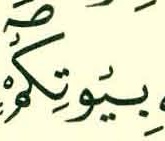 بِيُوتِكُمْ